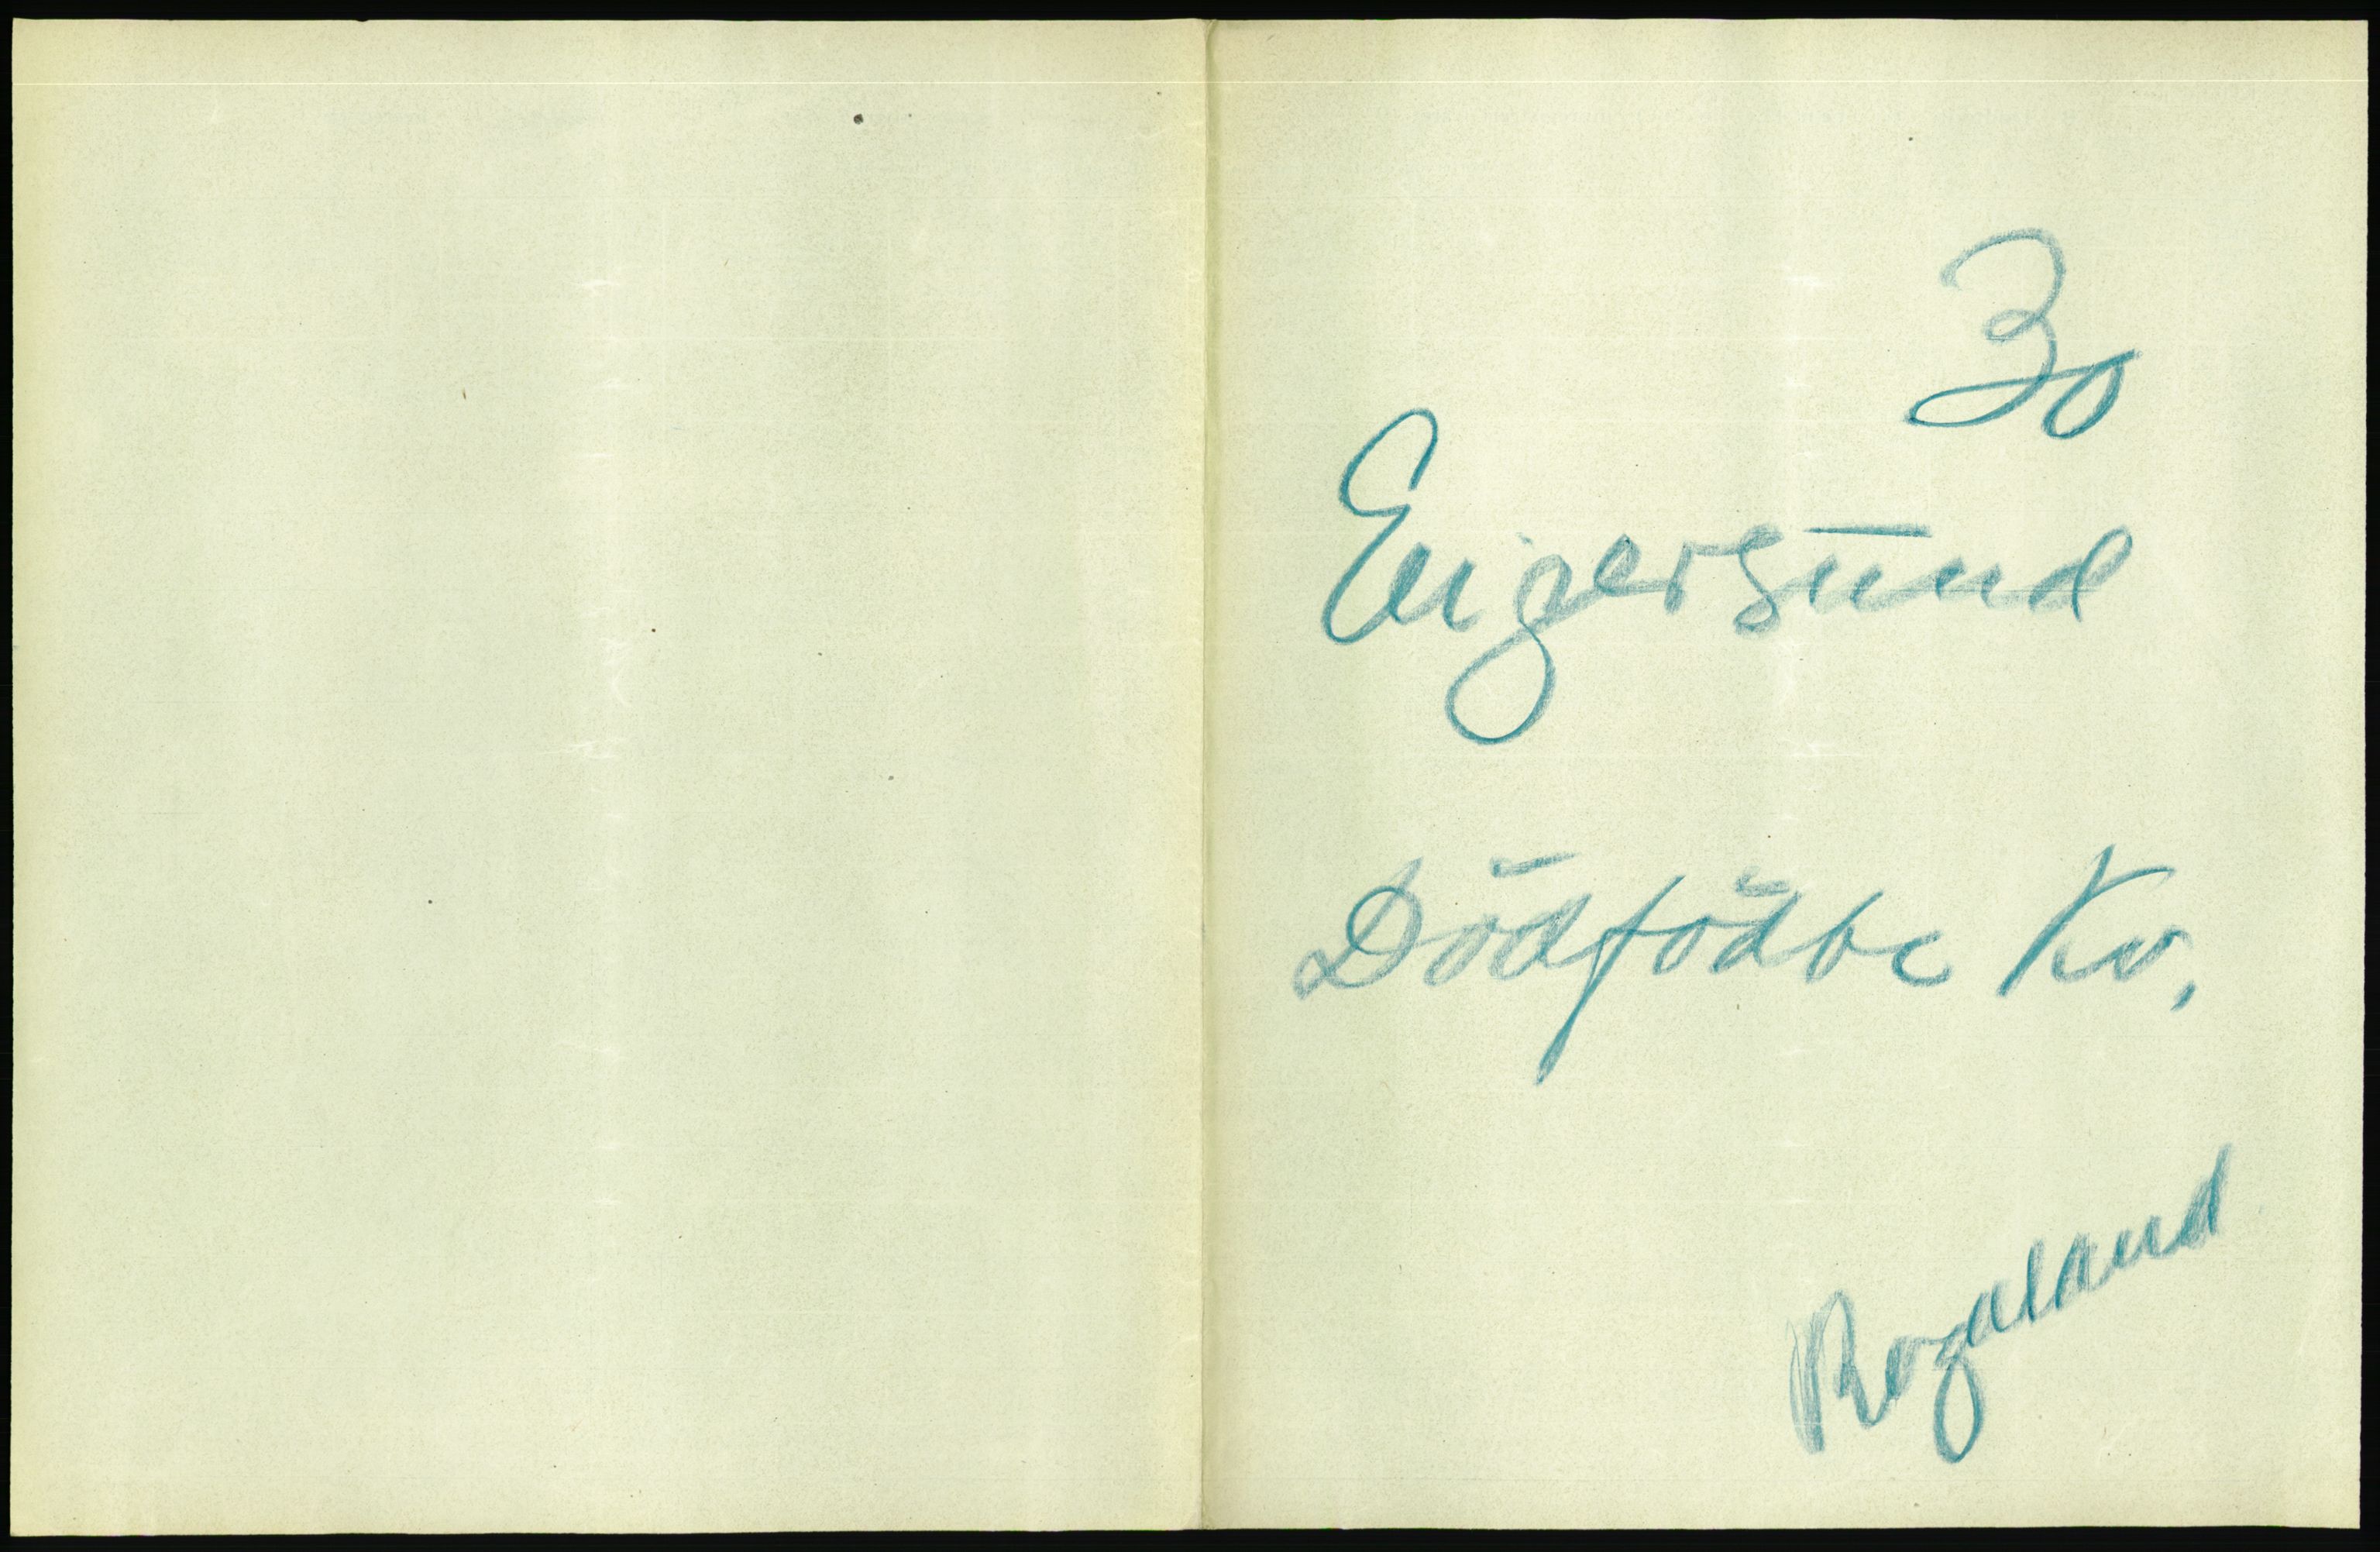 30
Eigersund
Dödfödte Kv.
Rogaland